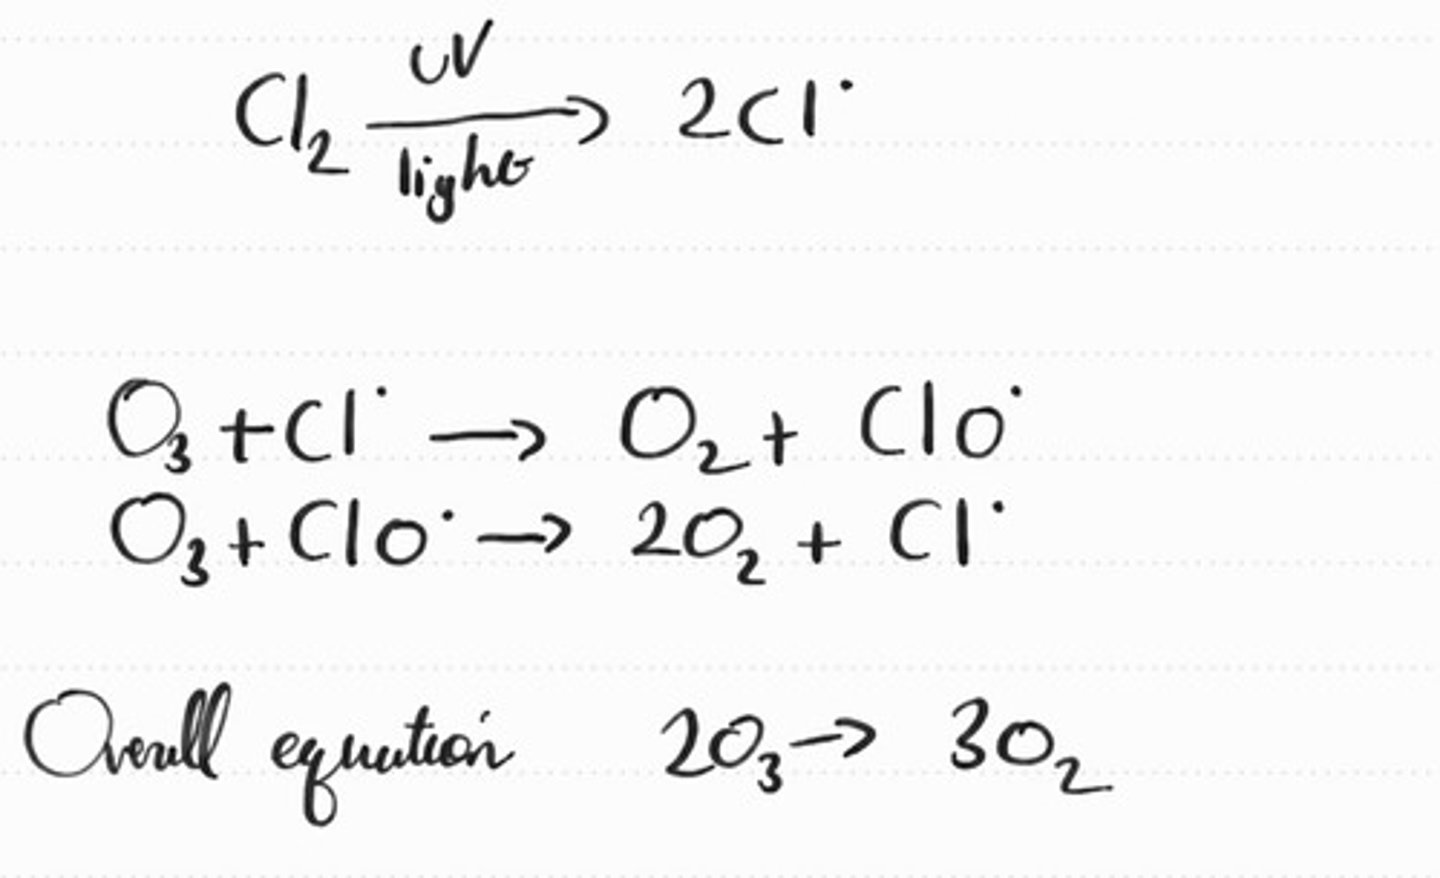 Cl₂ UV light → 2Cl˙
O₃ + Cl˙ → O₂ + ClO˙
O₃ + ClO˙ → 2O₂ + Cl˙
Overall equation 2O₃ → 3O₂